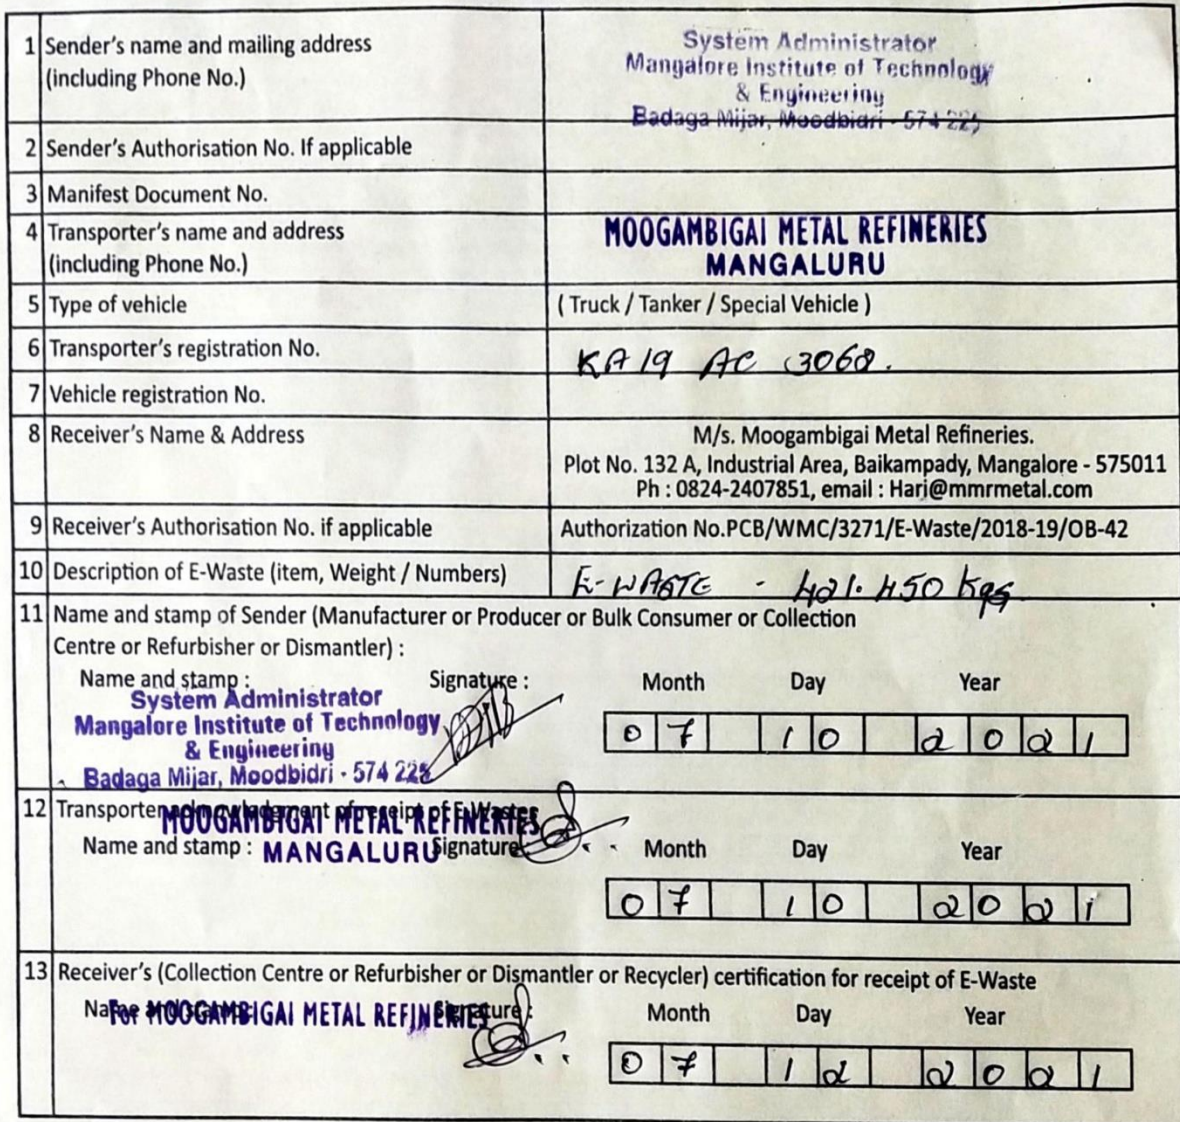 1 Sender's name and mailing address
(including Phone No.)
System Administrator
Mangalore Institute of Technology
& Engineering
Badaga Mijar, Moodbidri - 574 225
2 Sender's Authorisation No. If applicable
3 Manifest Document No.
4 Transporter's name and address
(including Phone No.)
MOOGAMBIGAI METAL REFINERIES
MANGALURU
5 Type of vehicle
( Truck / Tanker / Special Vehicle )
6 Transporter's registration No.
KA 19 AC 3068.
7 Vehicle registration No.
8 Receiver's Name & Address
M/s. Moogambigai Metal Refineries.
Plot No. 132 A, Industrial Area, Baikampady, Mangalore - 575011
Ph : 0824-2407851, email : Harj@mmrmetal.com
9 Receiver's Authorisation No. if applicable
Authorization No.PCB/WMC/3271/E-Waste/2018-19/OB-42
10 Description of E-Waste (item, Weight / Numbers)
E-WASTE - 421.450 Kgs
11 Name and stamp of Sender (Manufacturer or Producer or Bulk Consumer or Collection
Centre or Refurbisher or Dismantler) :
Name and stamp : Signature : Month Day Year
System Administrator
Mangalore Institute of Technology
& Engineering
Badaga Mijar, Moodbidri - 574 225
07 10 2021
12 Transporter acknowledgment of receipt of E-Wastes
MOOGAMBIGAI METAL REFINERIES
Name and stamp : MANGALURU Signature Month Day Year
07 10 2021
13 Receiver's (Collection Centre or Refurbisher or Dismantler or Recycler) certification for receipt of E-Waste
Name and stamp Signature : Month Day Year
For MOOGAMBIGAI METAL REFINERIES
07 12 2021